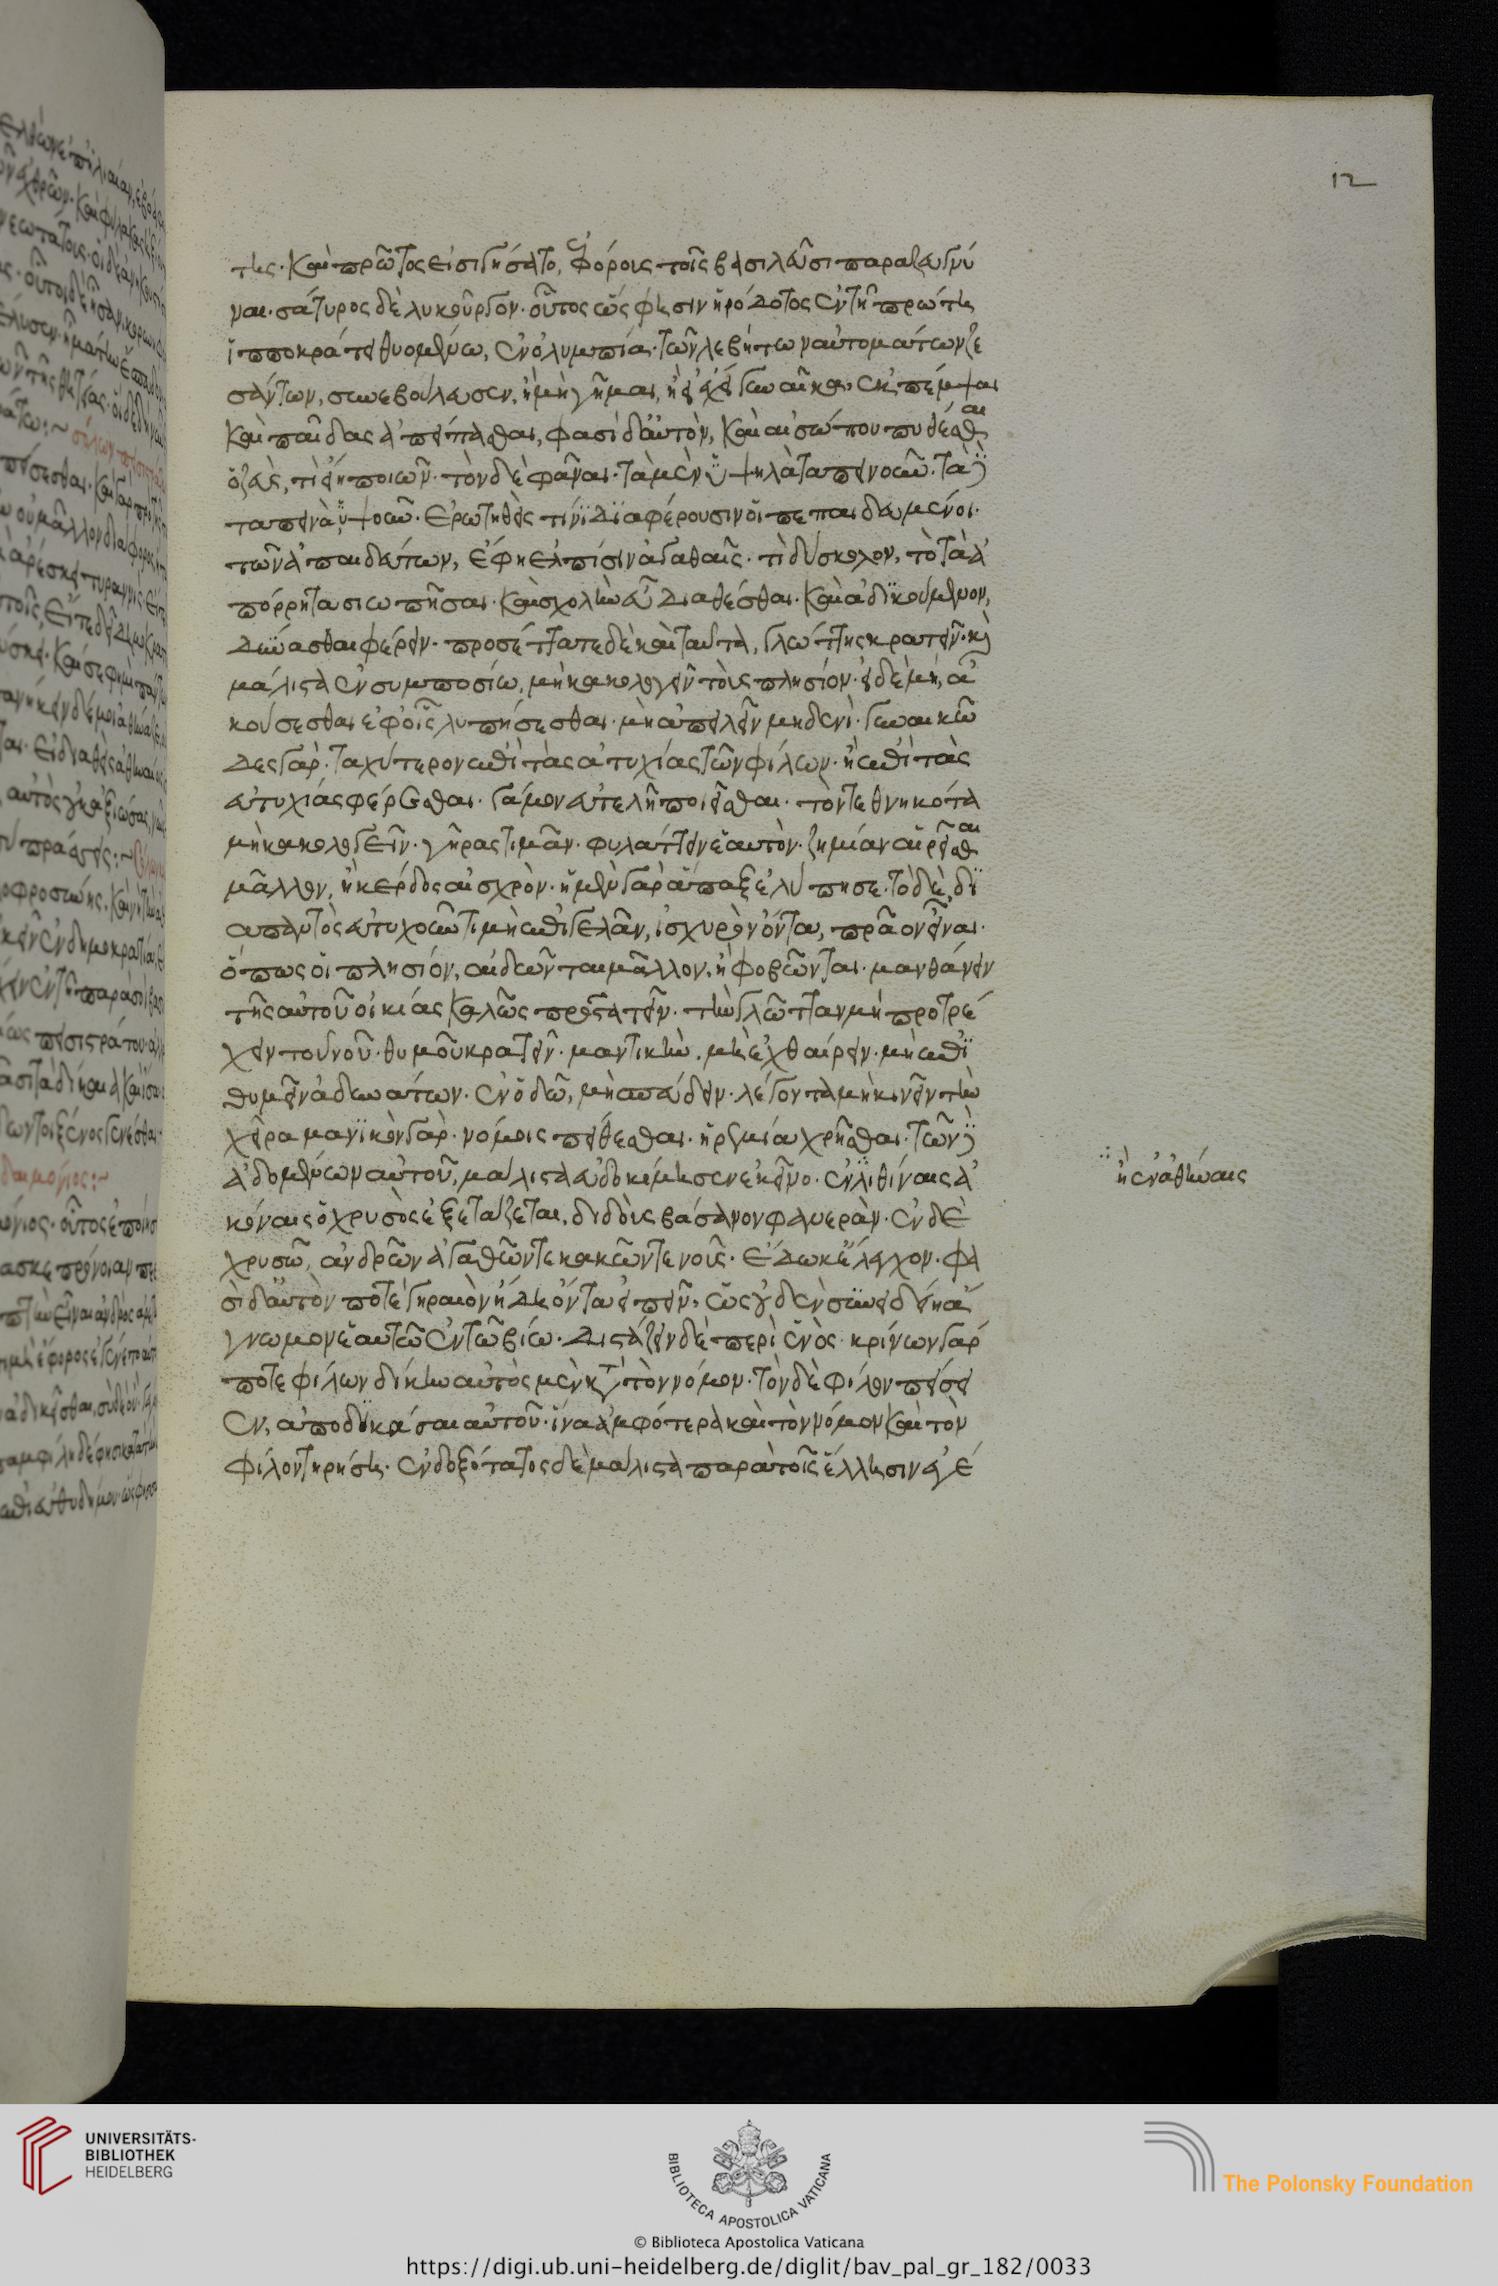 12
της· καὶ πρῶτος εἰσηγήσατο, ἐφόρους τοῖς βασιλεῦσι παραζευγνύ
ναι· σάτυρος δὲ λυκοῦργον· οὗτος ὥς φησιν ἡρόδοτος ἐν τῆ πρώτη
ἱπποκράτει θυομένω, ἐν ὀλυμπία· τῶν λεβήτων αὐτομάτων ζε
σάντων, συνεβούλευσεν, ἢ μὴ γῆμαι, ἢ εἰ ἔχει γυναῖκα, ἐκπέμψαι
καὶ παῖδας ἀπείπασθαι, φασὶ δ' αὐτὸν, καὶ αἰσώπου πυθέσθαι
ὁ ζεὺς, τί εἴη ποιῶν· τὸν δὲ φᾶναι· τὰ μὲν ὑψηλὰ ταπεινοῦν· τὰ δὲ
ταπεινὰ, ὑψοῦν· ἐρωτηθεὶς τίνι διαφέρουσιν οἱ πεπαιδευμένοι·
τῶν ἀπαιδεύτων, ἔφη ἐλπίσιν ἀγαθαῖς· τί δύσκολον, τὸ τὰ ἀ
πόρρητα σιωπῆσαι· καὶ σχολὴν εὖ διαθέσθαι· καὶ ἀδικούμενον,
δύνασθαι φέρειν· προσέταττε δὲ καὶ ταῦτα, γλώττης κρατεῖν· καὶ
μάλιστα ἐν συμποσίω, μὴ κακολογεῖν τοὺς πλησίον· εἰ δὲ μή, ἀ
κούσεσθαι ἐφ' οἷς λυπήσεσθαι· μὴ ἀπειλεῖν μηδενί· γυναικῶ
δες γάρ· ταχύτερον ἐπὶ τὰς ἀτυχίας τῶν φίλων· ἢ ἐπὶ τὰς
εὐτυχίας φέρεσθαι· γάμον εὐτελῆ ποιεῖσθαι· τὸν τεθνηκότα
μὴ κακολογεῖν· γῆρας τιμᾶν· φυλάττειν ἑαυτὸν· ζημίαν αἱρεῖσθαι
μᾶλλον, ἢ κέρδος αἰσχρὸν· ἡ μὲν γὰρ ἅπαξ ἐλύπησε· τὸ δὲ, δι
απαντὸς ἀτυχοῦντι μὴ ἐπιγελᾶν, ἰσχυρὸν ὄντα, πρᾶον εἶναι·
ὅπως οἱ πλησίον, αἰδῶνται μᾶλλον, ἢ φοβῶνται· μανθάνειν
τῆς αὐτοῦ οἰκίας καλῶς προστατεῖν· τὴν γλῶτταν μὴ προτρέ
χειν τοῦ νοῦ· θυμοῦ κρατεῖν· μαντικὴν, μὴ ἐχθαίρειν· μὴ ἐπι
θυμεῖν ἀδυνάτων· ἐν ὁδῶ, μὴ σπεύδειν· λέγοντα μὴ κινεῖν τὴν
χεῖρα μανικὸν γάρ· νόμοις πείθεσθαι· ἠρεμία χρῆσθαι· τῶν δὲ
ἀδομένων αὐτοῦ, μάλιστα εὐδοκίμησεν ἐκεῖνο· ἐν λιθίναις ἀ
κόναις ὁ χρυσὸς ἐξετάζεται, διδοὺς βάσανον φανεράν· ἐν δὲ
χρυσῶ, ἀνδρῶν ἀγαθῶν τε κακῶν τε νοῦς· ἔδωκε ἔλεγχον· φα
σὶ δ' αὐτὸν ποτὲ γηραιὸν ἤδη ὄντα εἰπεῖν, ὡς οὐδὲν συνειδείη ἄ
γνωμον ἑαυτῶ ἐν τῶ βίω· διστάζειν δὲ περὶ ἑνὸς· κρίνων γάρ
ποτε φίλων δίκην αὐτὸς μὲν κατὰ τὸν νόμον· τὸν δὲ φίλον πείσει
εν, ἀποδικάσαι αὐτοῦ· ἵνα ἀμφότερα καὶ τὸν νόμον καὶ τὸν
φίλον τηρήση· ἐνδοξότατος δὲ μάλιστα παρὰ τοῖς ἕλλησιν ἐγέ
ἢ ἐν ἀθήναις
UNIVERSITÄTS-
BIBLIOTHEK
HEIDELBERG
BIBLIOTECA APOSTOLICA VATICANA
© Biblioteca Apostolica Vaticana
The Polonsky Foundation
https://digi.ub.uni-heidelberg.de/diglit/bav_pal_gr_182/0033